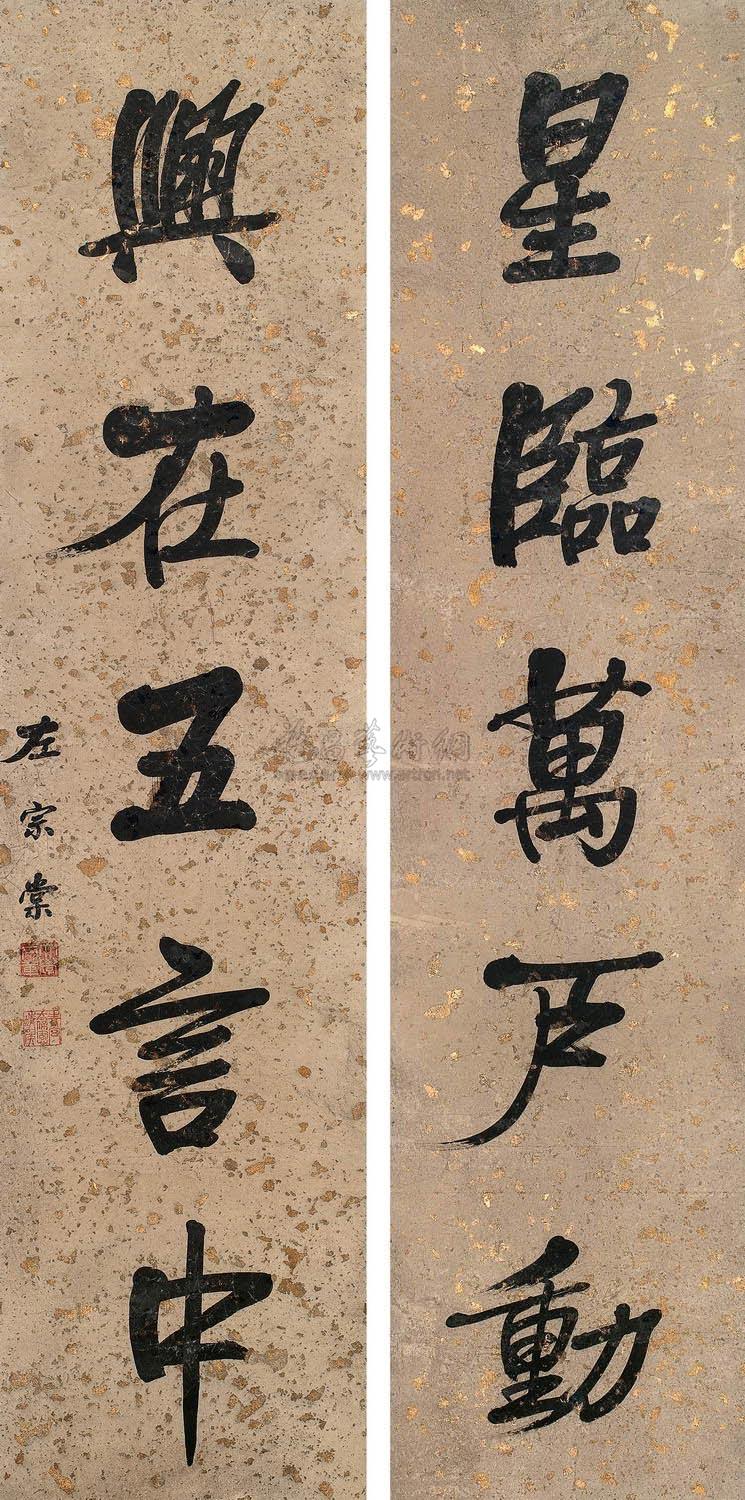 星臨萬戶動
興在五言中
左宗棠
www.artron.net